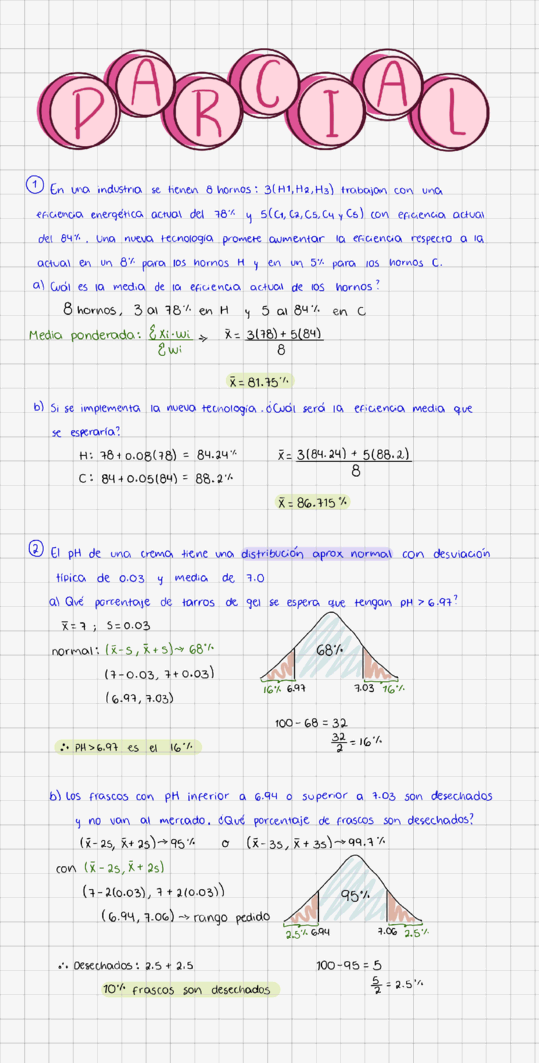 PARCIAL
1 En una industria se tienen 8 hornos: 3(H1,H2,H3) trabajan con una
eficiencia energética actual del 78% y 5(C1,C2,C3,C4 y C5) con eficiencia actual
del 84%. Una nueva tecnología promete aumentar la eficiencia respecto a la
actual en un 8% para los hornos H y en un 5% para los hornos C.
a) Cuál es la media de la eficiencia actual de los hornos?
8 hornos, 3 al 78% en H y 5 al 84% en C
Media ponderada: Σxi·wi / Σwi => x̄ = 3(78) + 5(84) / 8
x̄ = 81.75%
b) Si se implementa la nueva tecnología. ¿Cuál será la eficiencia media que
se esperaría?
H: 78 + 0.08(78) = 84.24% x̄ = 3(84.24) + 5(88.2) / 8
C: 84 + 0.05(84) = 88.2%
x̄ = 86.715%
2 El pH de una crema tiene una distribución aprox normal con desviación
típica de 0.03 y media de 7.0
a) Qué porcentaje de tarros de gel se espera que tengan pH > 6.97?
x̄ = 7 ; s = 0.03
normal: (x̄-s, x̄+s) → 68%
68%
(7-0.03, 7+0.03)
16% 6.97 7.03 16%
(6.97, 7.03)
100 - 68 = 32
32/2 = 16%
∴ PH > 6.97 es el 16%
b) Los frascos con pH inferior a 6.94 o superior a 7.03 son desechados
y no van al mercado. ¿Qué porcentaje de frascos son desechados?
(x̄-2s, x̄+2s) → 95% o (x̄-3s, x̄+3s) → 99.7%
con (x̄-2s, x̄+2s)
(7-2(0.03), 7+2(0.03))
95%
(6.94, 7.06) → rango pedido
2.5% 6.94 7.06 2.5%
∴ Desechados: 2.5 + 2.5
100 - 95 = 5
5/2 = 2.5%
10% frascos son desechados